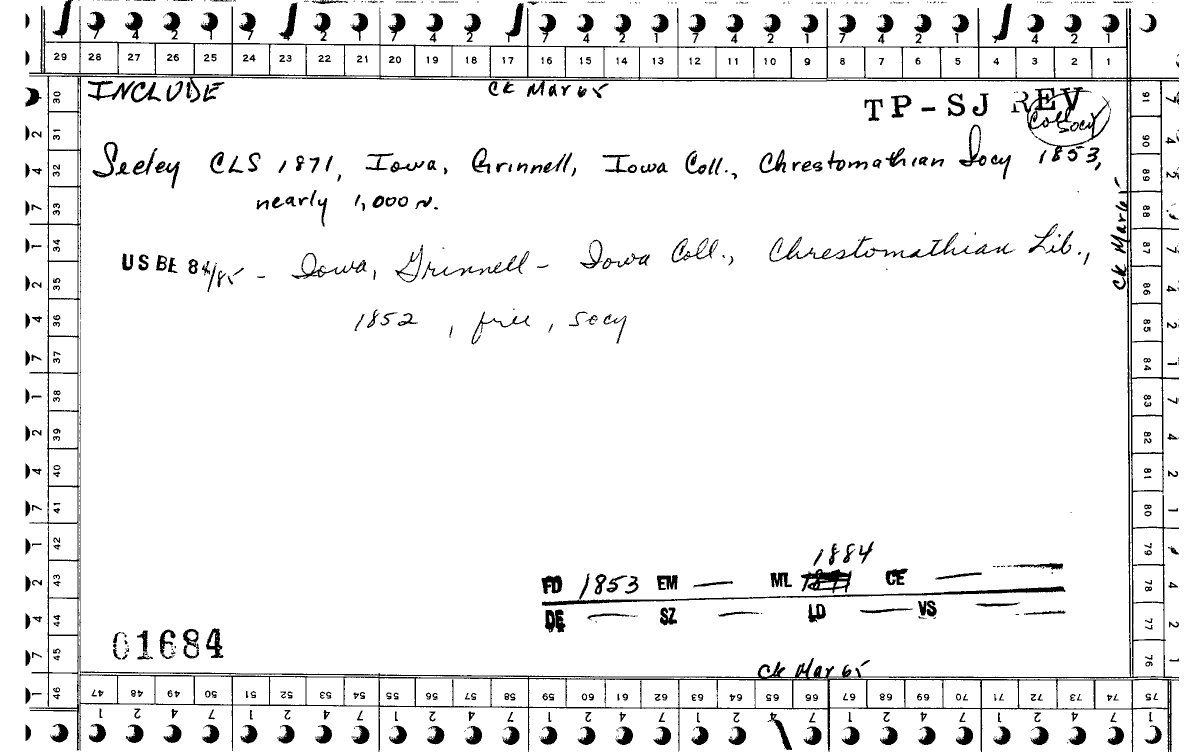 7 4 2 1 7 4 2 1 7 4 2 1 7 4 2 1 7 4 2 1 7 4 2 1
29 28 27 26 25 24 23 22 21 20 19 18 17 16 15 14 13 12 11 10 9 8 7 6 5 4 3 2 1
INCLUDE CK Mar 65
TP-SJ REV
Coll Socy
Seeley CLS 1871, Iowa, Grinnell, Iowa Coll., Chrestomathian Socy 1853,
nearly 1,000 v.
USBE 84/85 - Iowa, Grinnell - Iowa Coll., Chrestomathian Lib.,
1852, free, socy
CK Mar 65
1884
FD 1853 EM — ML 1871 CE —
DE — SZ — LD — VS —
01684
CK Mar 65
30 31 32 33 34 35 36 37 38 39 40 41 42 43 44 45 46
91 90 89 88 87 86 85 84 83 82 81 80 79 78 77 76
47 48 49 50 51 52 53 54 55 56 57 58 59 60 61 62 63 64 65 66 67 68 69 70 71 72 73 74 75
1 2 4 7 1 2 4 7 1 2 4 7 1 2 4 7 1 2 4 7 1 2 4 7 1 2 4 7 1